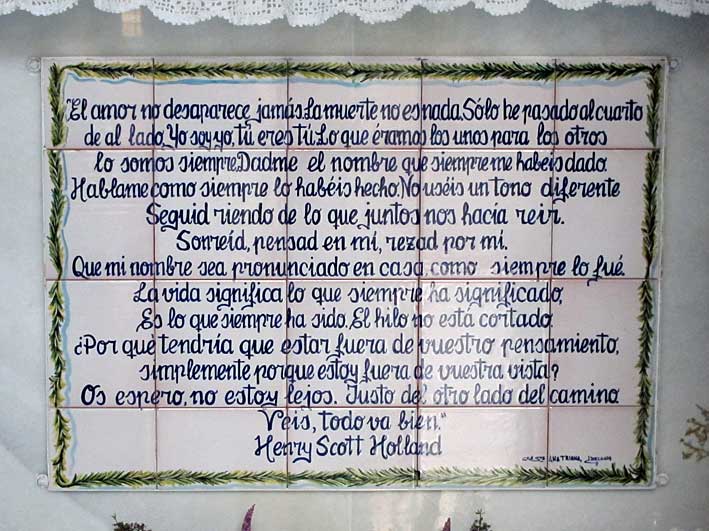 "El amor no desaparece jamás. La muerte no es nada. Sólo he pasado al cuarto
de al lado. Yo soy yo, tú eres tú. Lo que éramos los unos para los otros
lo somos siempre. Dadme el nombre que siempre me habéis dado.
Hablame como siempre lo habéis hecho. No uséis un tono diferente
Seguid riendo de lo que juntos nos hacía reír.
Sonreíd, pensad en mí, rezad por mí.
Que mi nombre sea pronunciado en casa, como siempre lo fué.
La vida significa lo que siempre ha significado,
Es lo que siempre ha sido. El hilo no está cortado
¿Por qué tendría que estar fuera de vuestro pensamiento,
simplemente porque estoy fuera de vuestra vista?
Os espero, no estoy lejos. Justo del otro lado del camino
Veis, todo va bien."
Henry Scott Holland
ANA TRIANA